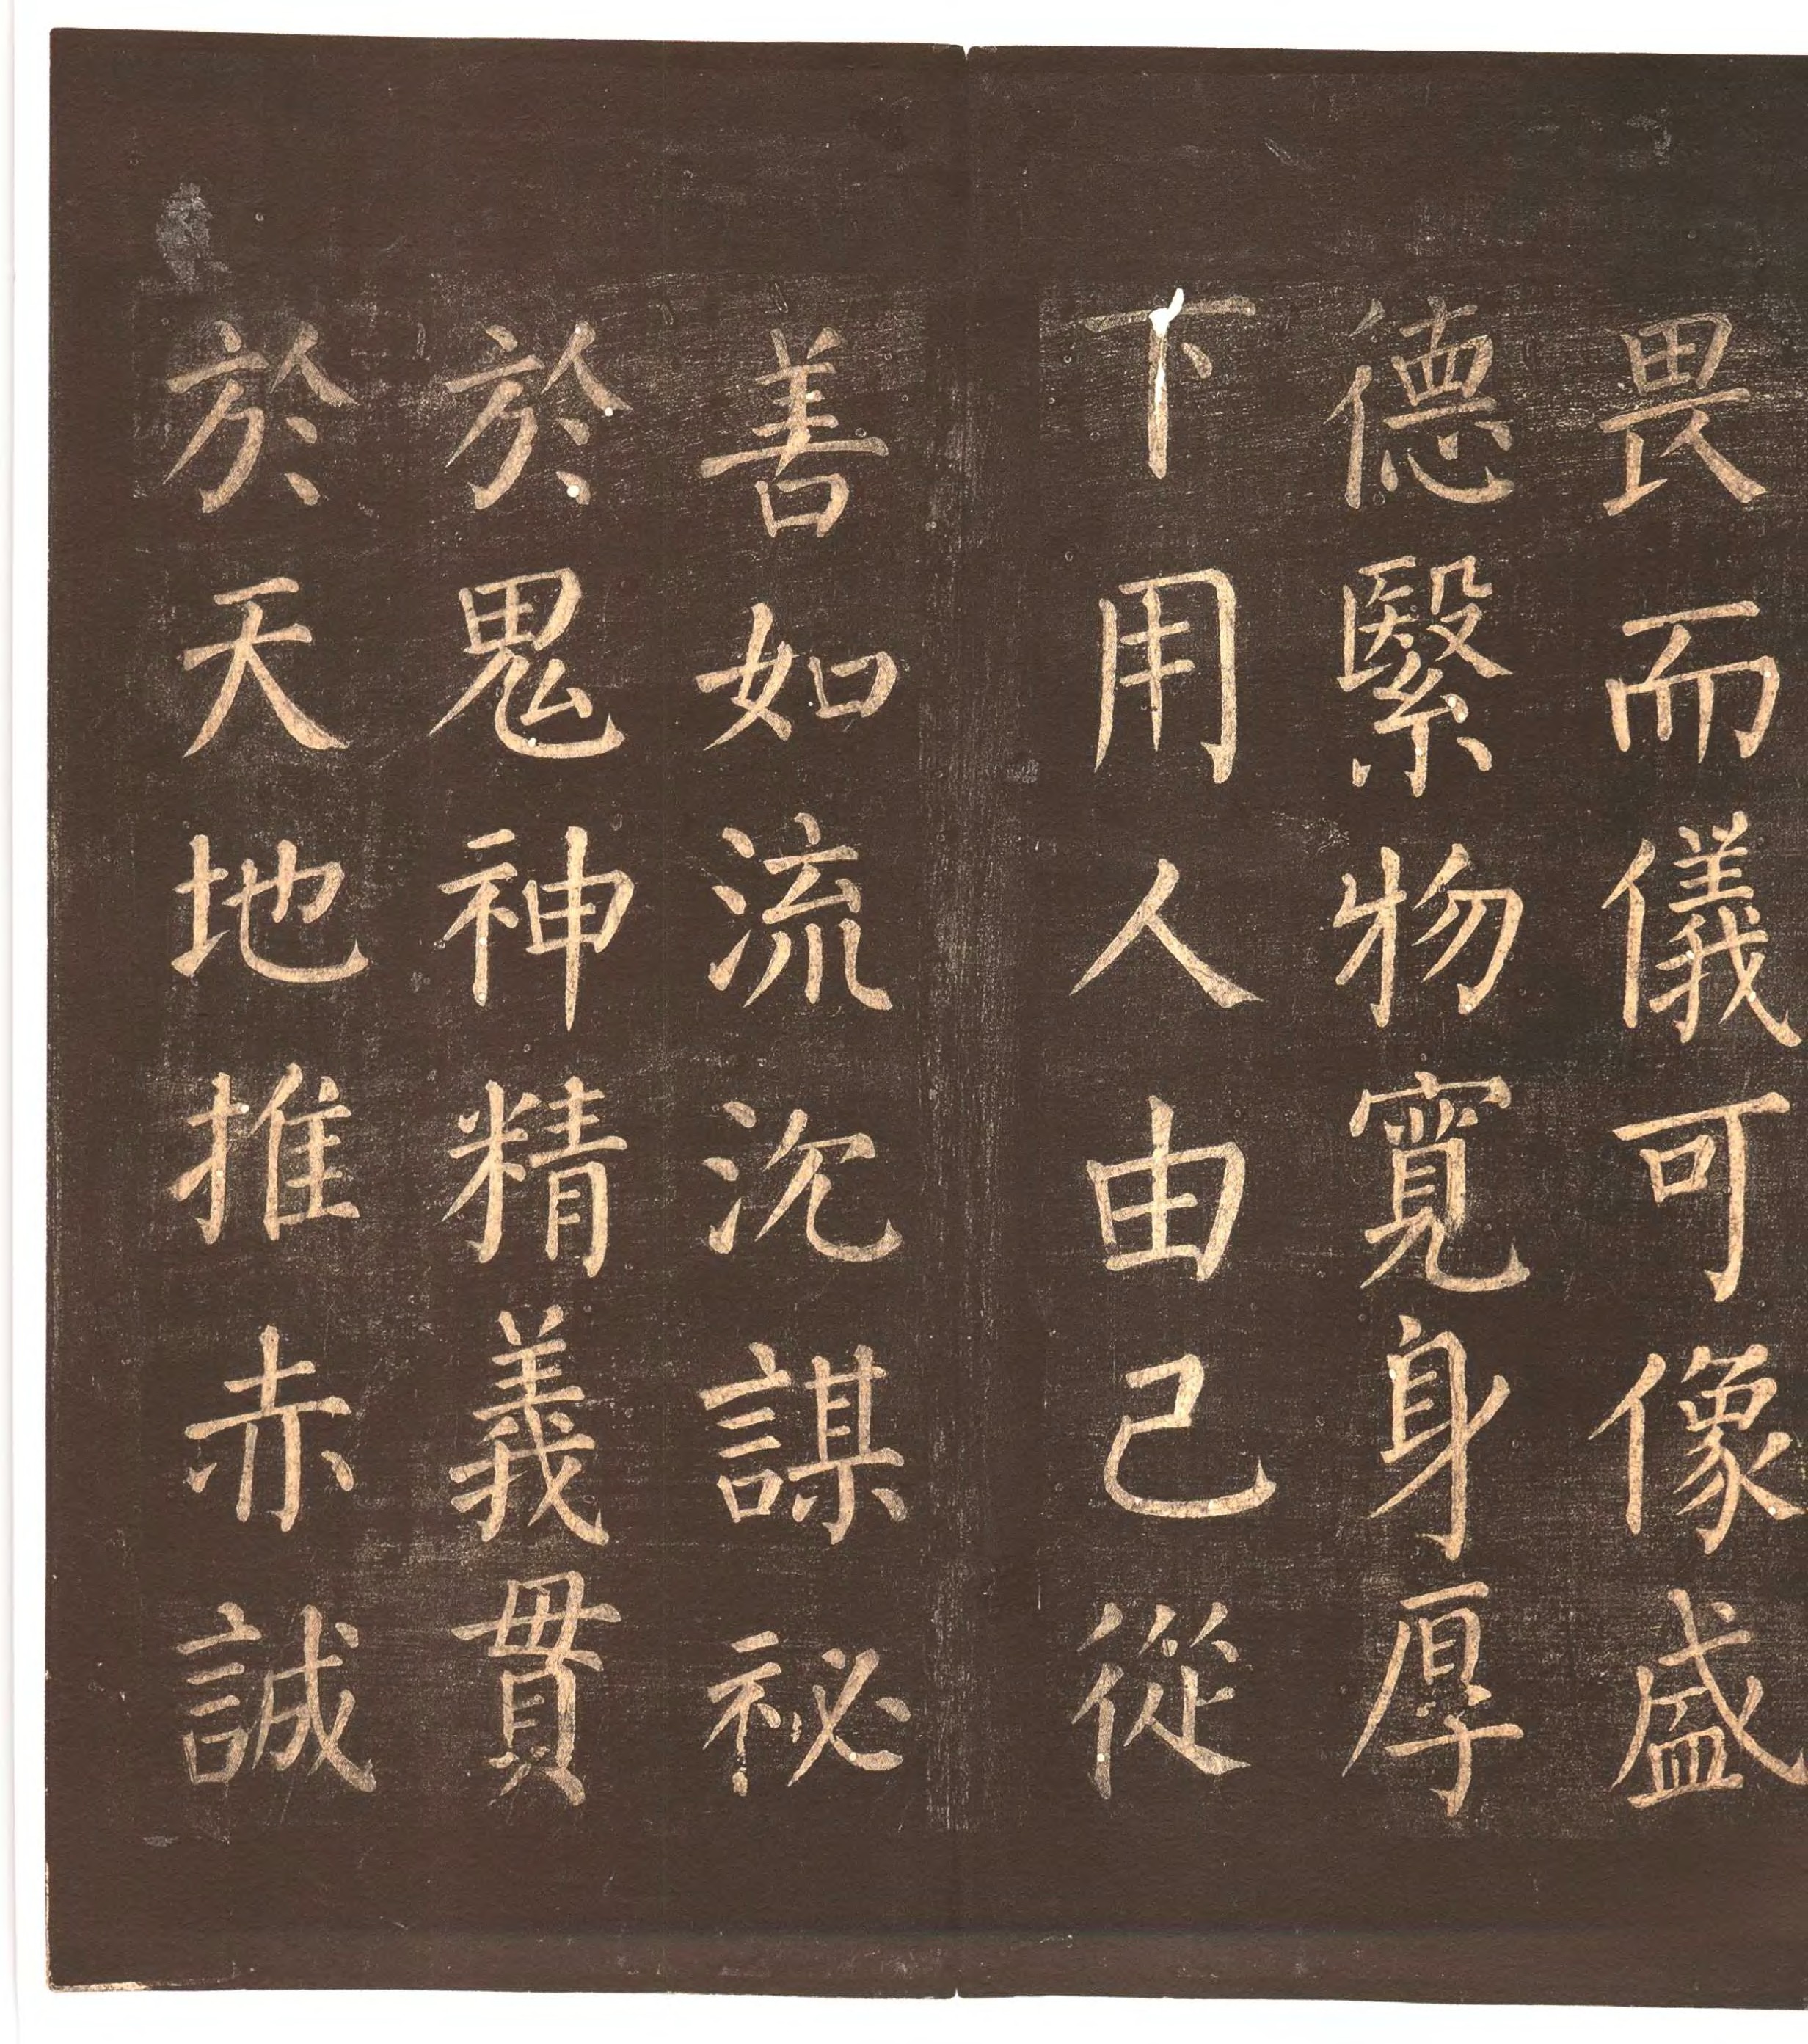 畏而儀可像盛
德緊物寬身厚
下用人由己從
善如流沉謀祕
於鬼神精義貫
於天地推赤誠